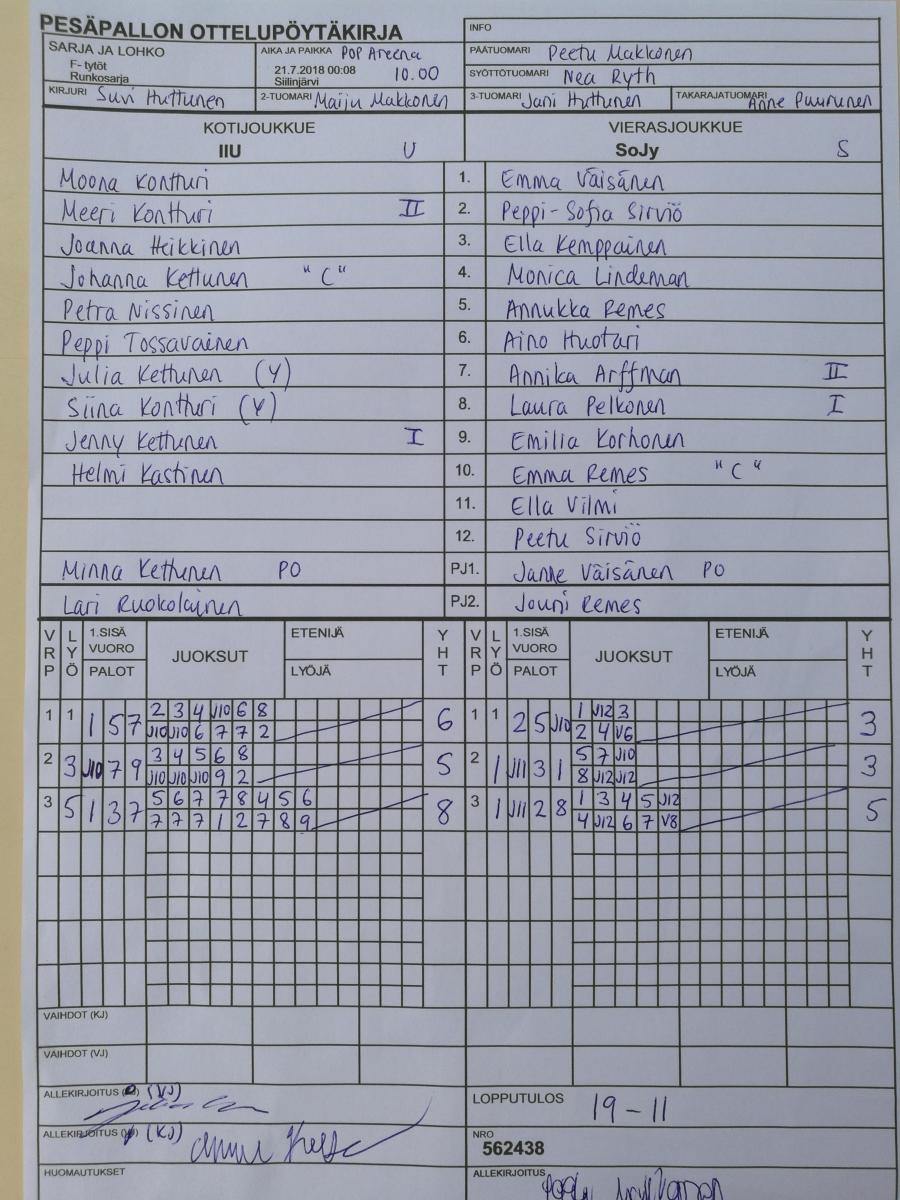 PESÄPALLON OTTELUPÖYTÄKIRJA
INFO
SARJA JA LOHKO
F- tytöt
Runkosarja
AIKA JA PAIKKA POP Areena
21.7.2018 00:08 10.00
Siilinjärvi
PÄÄTUOMARI Peetu Makkonen
SYÖTTÖTUOMARI Nea Ryth
KIRJURI Suvi Huttunen
2-TUOMARI Maiju Makkonen
3-TUOMARI Jani Huttunen
TAKARAJATUOMARI Anne Puurunen
KOTIJOUKKUE
IIU U
VIERASJOUKKUE
SoJy S
Moona Kontturi 1. Emma Väisänen
Meeri Kontturi II 2. Peppi-Sofia Sirviö
Joanna Heikkinen 3. Ella Kemppainen
Johanna Kettunen "C" 4. Monica Lindeman
Petra Nissinen 5. Annukka Remes
Peppi Tossavainen 6. Aino Huotari
Julia Kettunen (Y) 7. Annika Arffman II
Siina Kontturi (Y) 8. Laura Pelkonen I
Jenny Kettunen I 9. Emilia Korhonen
Helmi Kastinen 10. Emma Remes "C"
11. Ella Vilmi
12. Peetu Sirviö
Minna Kettunen PO PJ1. Janne Väisänen PO
Lari Ruokolainen PJ2. Jouni Remes
VRP LYÖ 1.SISÄ VUORO PALOT JUOKSUT ETENIJÄ LYÖJÄ YHT VRP LYÖ 1.SISÄ VUORO PALOT JUOKSUT ETENIJÄ LYÖJÄ YHT
1 1 1 5 7 2 3 4 J10 6 8 6 1 1 2 5 J10 1 J12 3 3
J10 J10 6 7 7 2 2 4 V6
2 3 J10 7 9 3 4 5 6 8 5 2 1 J11 3 1 5 7 J10 3
J10 J10 J10 9 2 8 J12 J12
3 5 1 3 7 5 6 7 7 8 4 5 6 8 3 1 J11 2 8 1 3 4 5 J12 5
7 7 7 1 2 7 8 9 4 J12 6 7 V8
VAIHDOT (KJ)
VAIHDOT (VJ)
ALLEKIRJOITUS (VJ)
LOPPUTULOS 19-11
ALLEKIRJOITUS (KJ)
NRO
562438
HUOMAUTUKSET
ALLEKIRJOITUS